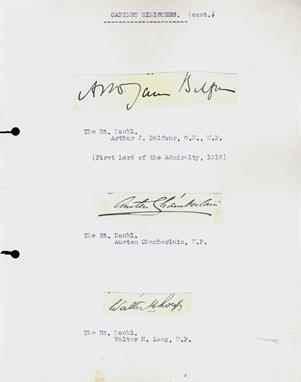 CABINET MINISTERS. (cont.)
Arthur James Balfour
The Rt. Honbl.
Arthur J. Balfour, O.M., M.P.
(First Lord of the Admiralty, 1916)
Austen Chamberlain
The Rt. Honbl.
Austen Chamberlain, M.P.
Walter H Long
The Rt. Honbl.
Walter H. Long, M.P.